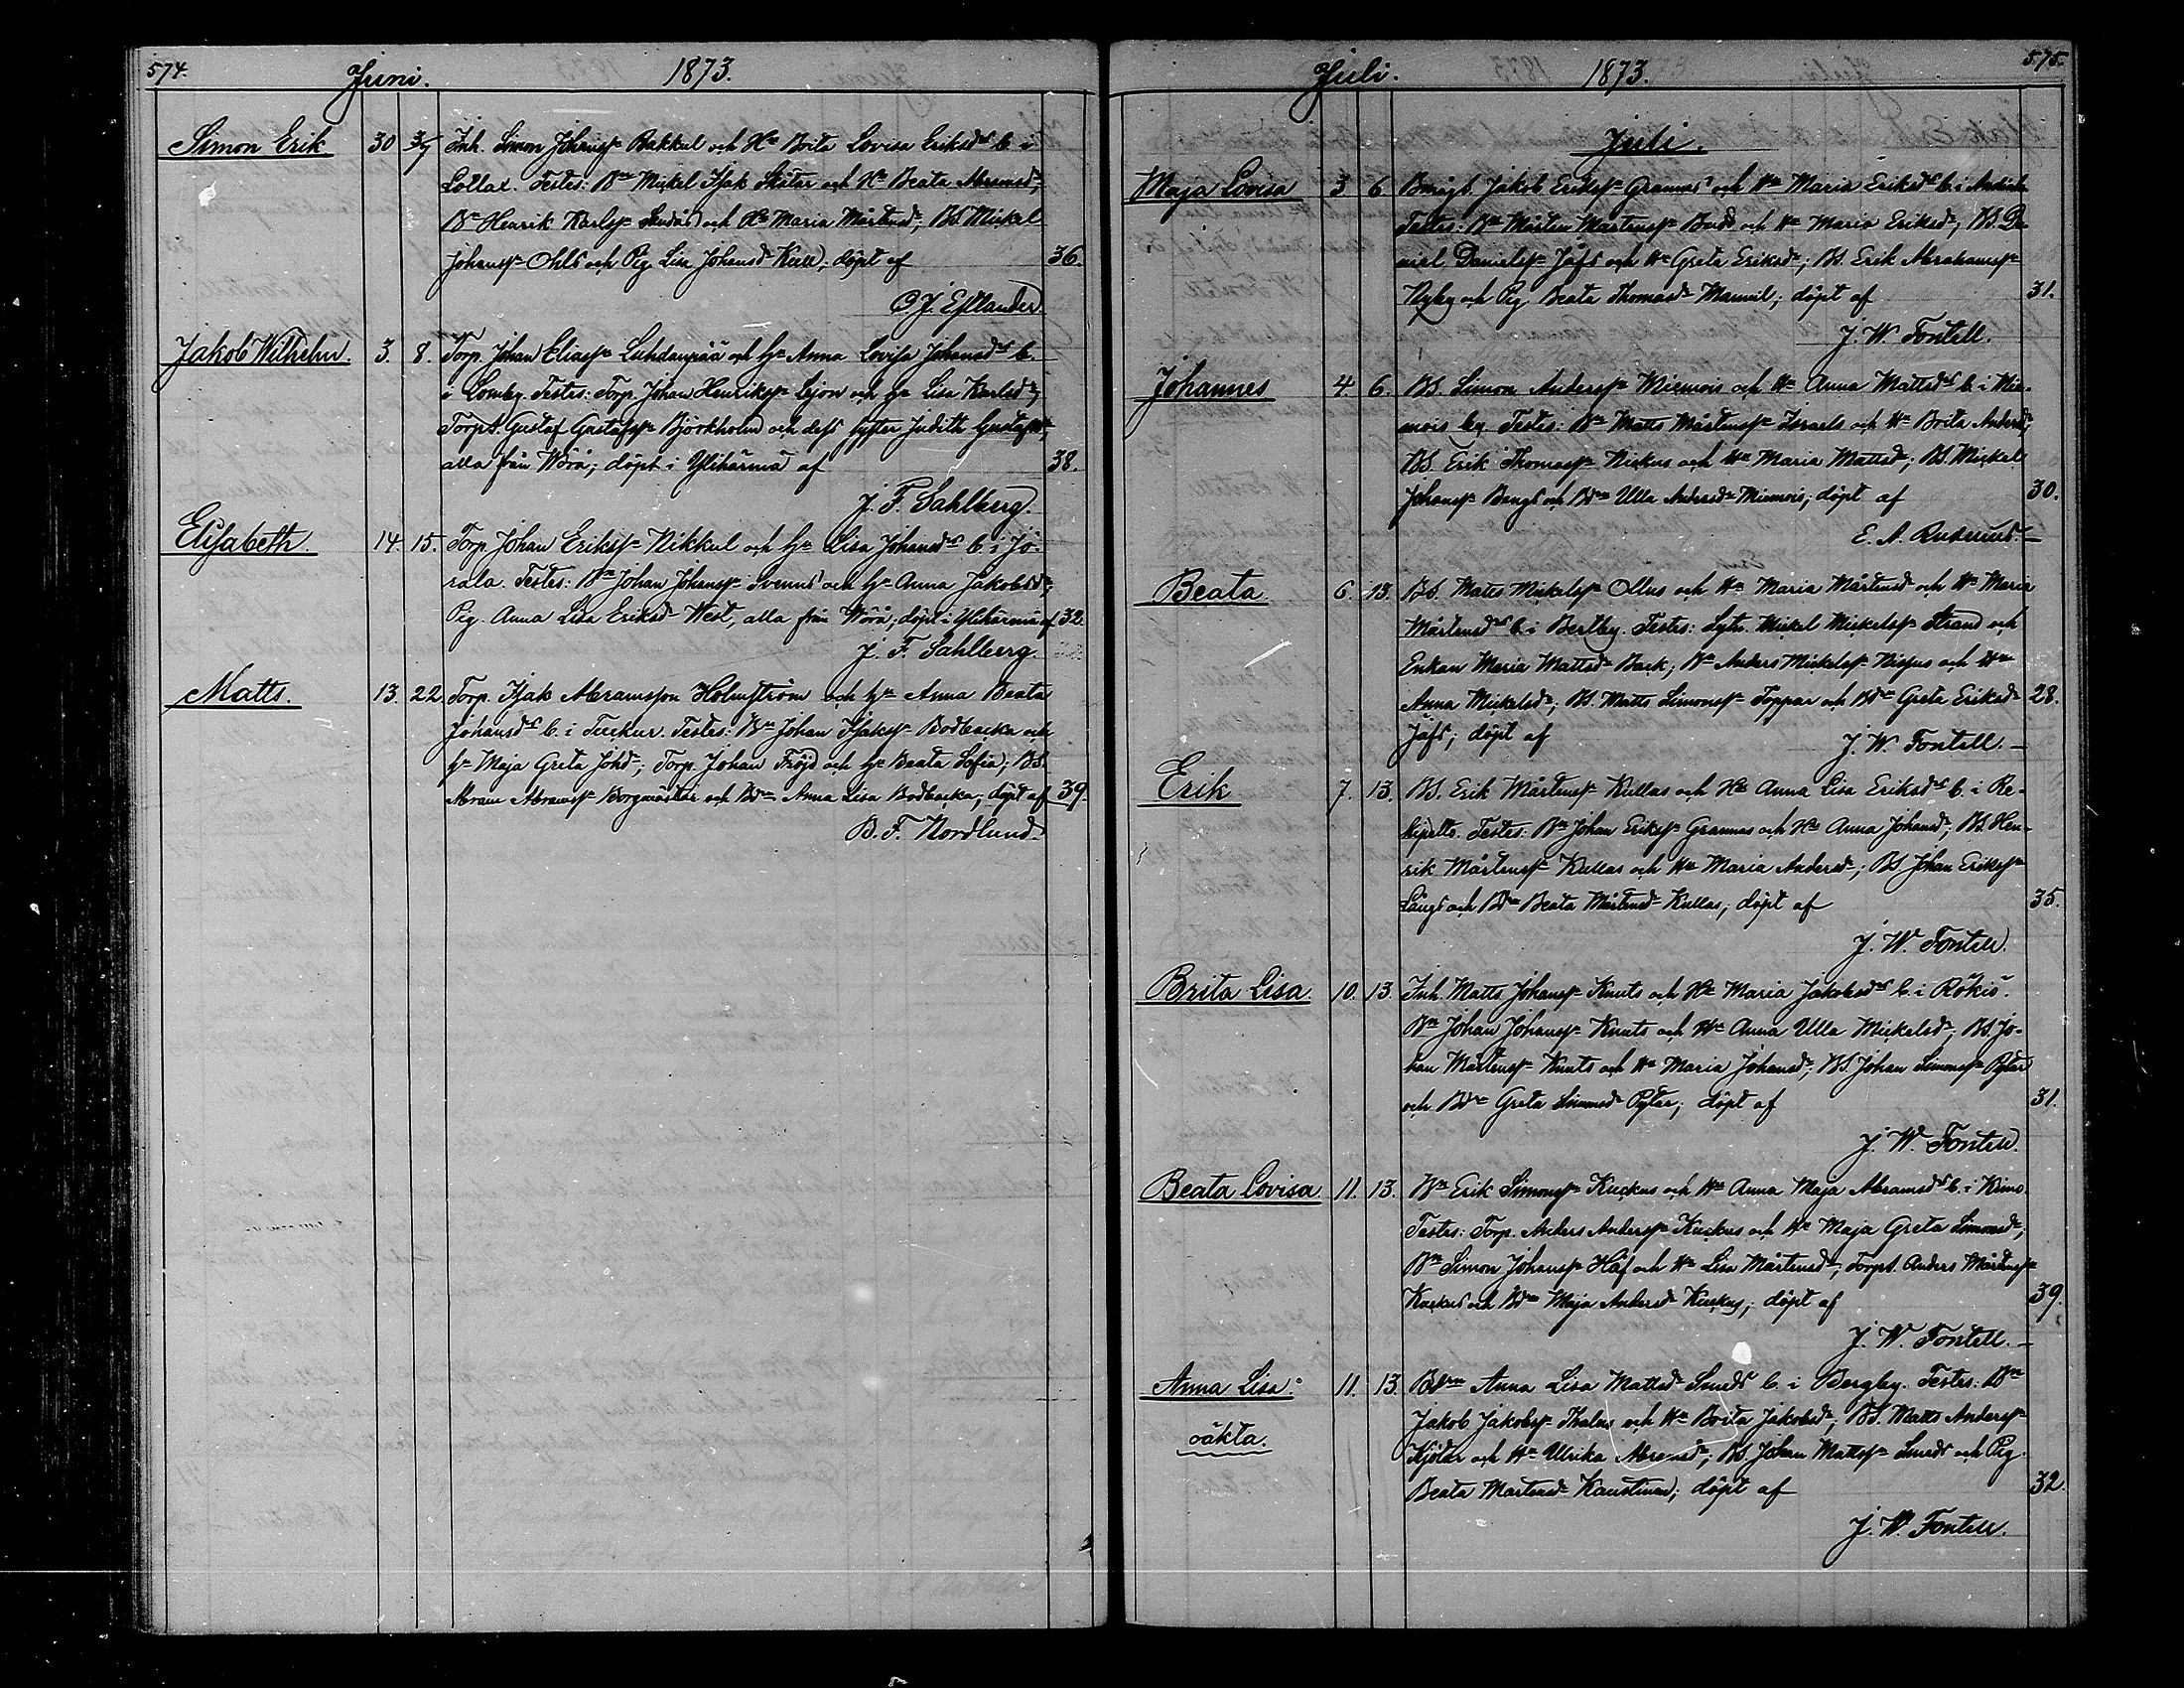 574. Juni. 1873.
Simon Erik 30 3/7 Inh. Simon Johanss Backkul och Hu Brita Lovisa Eriksdr b. i
Lollax. Testes: Bn Mickel Isak Skötar och Hu Beata Abramsdr;
Bn Henrik Karlss och Hu Maria Mårtensdr; BS. Mickel
Johanss Ohls och Pig. Lisa Johansdr; döpt af 36.
O. J. Estlander.
Jakob Wilhelm. 3. 8. Torp. Johan Eliass Luhdanpää och hu Anna Lovisa Johansdr b.
i Lomby. Testes: Torp. Johan Henrikss Lejon och hu Lisa Karlsdr;
Torps. Gustaf Gustafss Björkholm och dess syster Judith Gustafsdr,
alla från Wörå; döpt i Ylihärmä af 38.
J. F. Sahlberg.
Elisabeth. 14. 15. Torp. Johan Erikss Nikkul och hu Lisa Johansdr b. i Jö-
rala. Testes: Bn Johan Johanss Svenns och hu Anna Jakobsdr;
Pig. Anna Lisa Eriksdr West, alla från Wörå; döpt i Ylihärmä af 32.
J. F. Sahlberg.
Matts. 13. 22. Torp. Isak Abramsson Holmström och hu Anna Beata
Johansdr b. i Tuckur. Testes: Bn Johan Isakss Bodbacka och
hu Maja Greta Johdr; Torp. Johan Fröjd och hu Beata Sofia; BS.
Abram Abramss Borgmästar och Bdr Anna Lisa Bodbacka; döpt af 39.
B. F. Nordlund.
Juli. 1873. 575.
Juli.
Maja Lovisa 3 6 Jakob Erikss Grannas och Hu Maria Eriksdr b. i
Testes: Bn Mårten Mårtenss Buds och Hu Maria Eriksdr; BS. Da-
niel Danielss Jåfs och Hu Greta Eriksdr; BS. Erik Abrahamss
Nyby och Pig. Beata Thomasdr; döpt af 31.
J. W. Fontell.
Johannes 4. 6. BS. Simon Anderss Miemois och Hu Anna Mattsdr b. i Mie-
mois by. Testes: Bn Matts Mårtenss Israels och Hu Brita Andersdr;
BS. Erik Thomass Nickus och Hu Maria Mattsdr; BS. Mickel
Johanss Bengs och Bdr Ulla Andersdr Miemois; döpt af 30.
E. A. Rudnäs.
Beata 6. 13. BS. Matts Mickelss Ollus och Hu Maria Mårtensdr och Hu Maria
Mårtensdr b. i Bertby. Testes: Sytn. Mickel Mickelss Strand och
Enkan Maria Mattsdr Back; Bn Anders Mickelss och Hu
Anna Mickelsdr; BS. Matts Simonss Toppar och Bdr Greta Eriksdr 28.
Jåfs; döpt af J. W. Fontell.
Erik 7. 13. BS. Erik Mårtenss Kullas och Hu Anna Lisa Eriksdr b. i Re-
kipelto. Testes: Bn Johan Erikss Grannas och Hu Anna Johansdr; BS. Hen-
rik Mårtenss Kullas och Hu Maria Andersdr; BS. Johan Erikss
Långs och Bdr Beata Mårtensdr Kullas; döpt af 35.
J. W. Fontell.
Brita Lisa. 10. 13. Inh. Matts Johanss Knuts och Hu Maria Jakobsdr b. i Rökiö.
Bn Johan Johanss Knuts och Hu Anna Ulla Mickelsdr; BS. Jo-
han Mårtenss Knuts och Hu Maria Johansdr; BS. Johan Simonss Pytar
och Bdr Greta Simonsdr Pytar; döpt af 31.
J. W. Fontell.
Beata Lovisa. 11. 13. Bn Erik Simonss Kuckus och Hu Anna Maja Abramsdr b. i Kimo.
Testes: Torp. Anders Anderss Kuckus och Hu Maja Greta Simonsdr;
Bn Simon Johanss Håf och Hu Lisa Mårtensdr; Torps. Anders Mårtenss
Kuckus och Bdr Maja Andersdr Kuckus; döpt af 39.
J. W. Fontell.
Anna Lisa. 11. 13. Bdrn Anna Lisa Mattsdr Smeds b. i Bergby. Testes: Bn
oäkta. Jakob Jakobss Thalus och Hu Brita Jakobsdr; BS. Matts Anderss
Kjölar och Hu Ulrika Abramsdr; BS. Johan Mattss Smeds och Pig.
Beata Mårtensdr; döpt af 32.
J. W. Fontell.